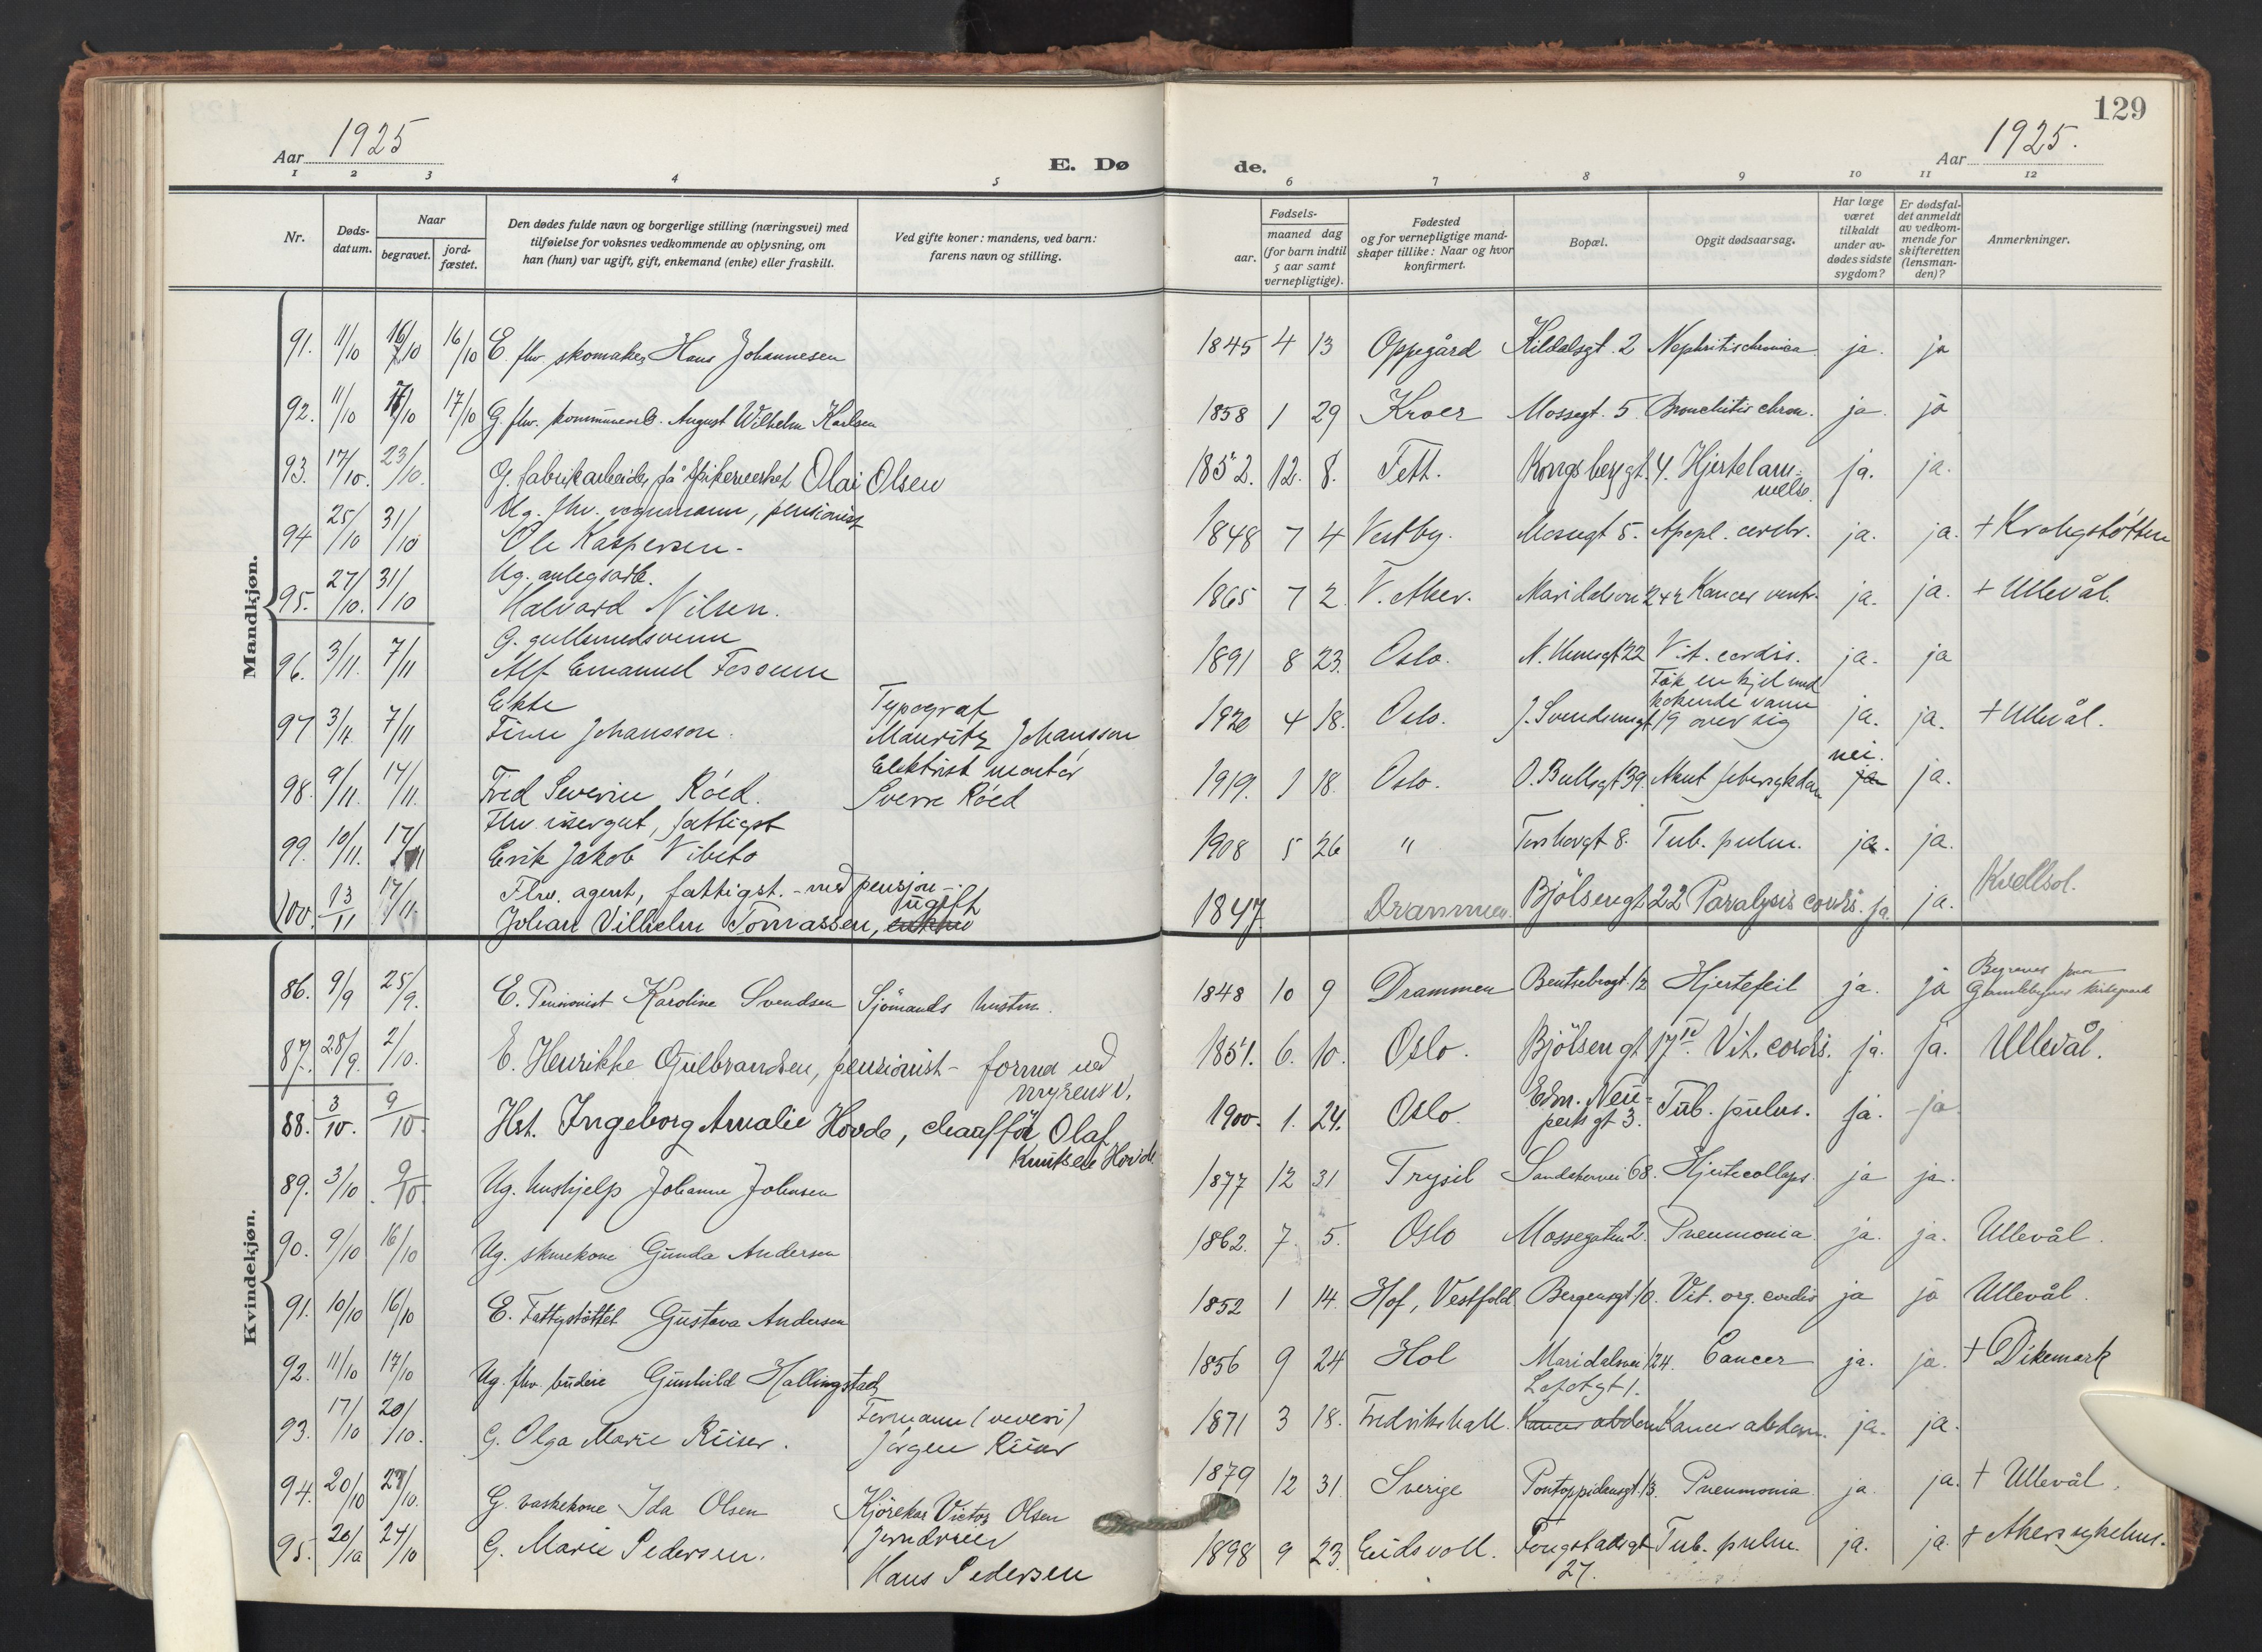 129
Aar 1925
E. Dø
de.
Aar 1925.
1 2 3 4 5 6 7 8 9 10 11 12
Nr.
Døds-
datum.
Naar
begravet.
jord-
fæstet.
Den dødes fulde navn og borgerlige stilling (næringsvei) med
tilføielse for voksnes vedkommende av oplysning, om
han (hun) var ugift, gift, enkemand (enke) eller fraskilt.
Ved gifte koner: mandens, ved barn:
farens navn og stilling.
Fødsels-
aar.
maaned dag
(for barn indtil
5 aar samt
vernepligtige).
Fødested
og for vernepligtige mand-
skaper tillike: Naar og hvor
konfirmert.
Bopæl.
Opgit dødsaarsag.
Har læge
været
tilkaldt
under av-
dødes sidste
sygdom?
Er dødsfal-
det anmeldt
av vedkom-
mende for
skifteretten
(lensman-
den)?
Anmerkninger.
Mandkjøn.
91. 11/10 16/10 16/10 E. fhv. skomaker Hans Johannesen 1845 4 13 Oppegård Kildalsgt. 2 Nephritis chronica ja. ja
92. 11/10 17/10 17/10 G. fhv. kommunearb. August Wilhelm Karlsen 1858 1 29 Kroer Mossegt. 5 Bronchitis chron. ja ja
93. 17/10. 23/10. G. fabrikarbeider på Spikerverket Olai Olsen 1852. 12. 8. Fett. Kongsberggt. 4. Hjertelam-
melse. ja. ja.
94 25/10 31/10 Ug. fhv. vognmann, pensionist
Ole Kaspersen. 1848 7 4 Vestby. Mossegt 5. Apopl. cerebr. ja. ja. + Krohgstøtten
95. 27/10. 31/10 Ug. anlegsarb.
Halvard Nilsen. 1865 7 2. V. Aker. Maridalsvei 242 Kancer ventr. ja. ja. + Ullevål.
96. 3/11. 7/11 G. gullsmedsvenn
Alf Emanuel Fossum 1891 8 23. Oslo. 22 Vit. cordis. ja. ja
97 3/11 7/11 Ekte
Finn Johansson. Typograf
Mauritz Johansson 1920 4 18. Oslo. J. Svendsensgt 19 Fik en kjel med
kokende vann
over sig ja. ja. + Ullevål.
98. 9/11. 14/11. Fred Severin Röed. Elektrisk montör
Sverre Röed 1919. 1 18. Oslo. O. Bullsgt 39. Akut febersykdom nei.
ja ja.
99. 10/11. 17/11 Fhv. visergut, fattigst
Erik Jakob Vibeto 1908 5 26 " Torshovgt 8. Tub. pulm. ja. ja.
100. 13/11 17/11. Fhv. agent, fattigst. - med pensjon -
Johan Vilhelm Tomassen, ugift 1847 Drammen. Bjölsengt. 22 Paralysis cordis. ja. ja. Kvellsol.
Kvindekjøn.
86. 9/9 25/9. E. Pensionist Karoline Svendsen Sjömands hustru. 1848 10 9 Drammen Bentsebrogt. 12 Hjertefeil ja. ja Begraves paa
Gamlebyens kirkegaard
87. 28/9. 2/10. E. Henrikke Gulbrandsen, pensionist - forma ved
myrens v. 1851. 6. 10. Oslo. Bjölsengt. 17 Vit. cordis. ja. ja. Ullevål.
88. 3/10. 9/10. Hst. Ingeborg Amalie Hovde, chauffør Olaf
Knutsen Hovde 1900. 1. 24. Oslo. Edm. Neu-
perts gt 3. Tub. pulm. ja. ja.
89. 3/10 9/10. Ug. hushjelp Johanne Johnsen 1877 12 31 Trysil Sandakervei 68. Hjertecollaps. ja ja.
90. 9/10 16/10 Ug. skurekone Gunda Andersen 1862. 7. 5. Oslo Mossegaten 2. Pneumonia ja. ja. Ullevål.
91. 10/10 16/10 E. Fattigstøttet Gustava Andersen 1852 1 14. Hof, Vestfold Bergensgt 10. Vit. org. cordis ja ja Ullevål.
92. 11/10 17/10 Ug. fhv. budeie Gunhild Hallingstad 1856 9 24 Hol Maridalsvei 124. Cancer ja. ja. + Dikemark
93. 17/10 20/10. G. Olga Marie Riiser. Formann (veveri)
Jørgen Riiser 1871 3 18. Fredrikshall. Lofotgt 1.
Kancer abdom Kancer abdom. ja. ja.
94. 20/10 27/10. G. vaskekone Ida Olsen Kjørekar Victor Olsen 1879 12 31. Sverige Pontoppidansgt. 13. Pneumonia ja ja. + Ullevål.
95. 20/10 24/10 G. Marie Pedersen. Jerndreier
Hans Pedersen 1898 9 23. Eidsvoll.
27. Tub. pulm. ja. ja. + Akers sykehus.